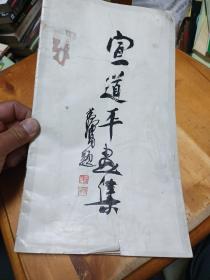 宣道平画集
题